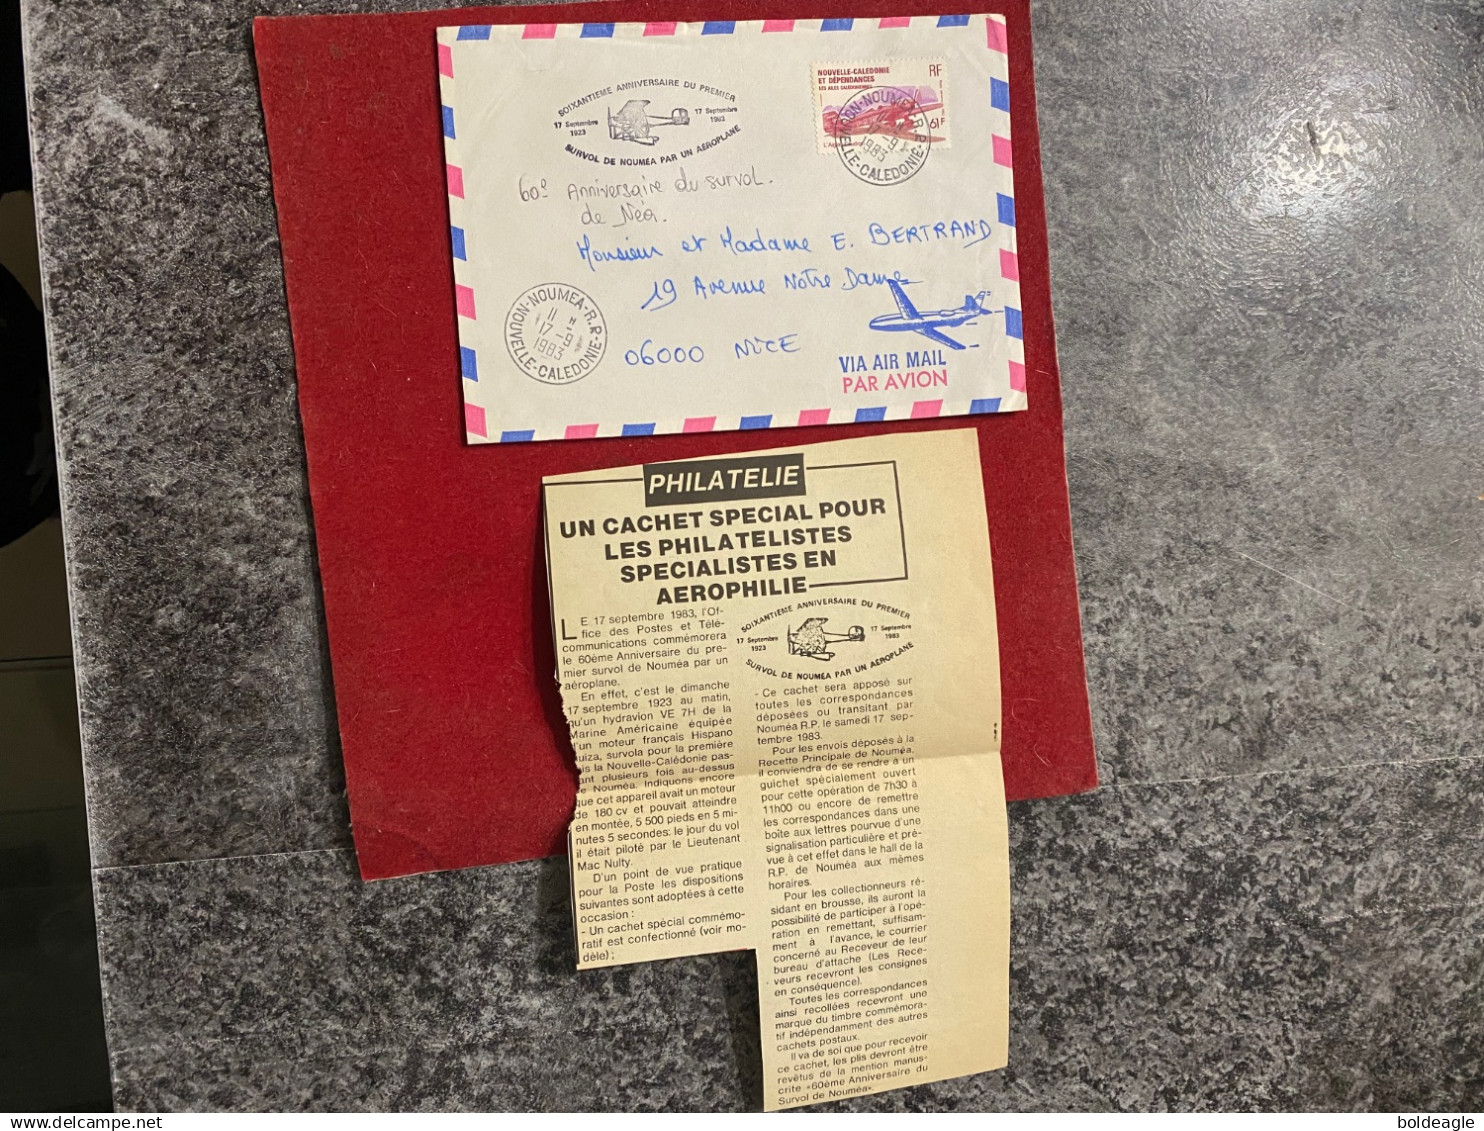 SOIXANTIEME ANNIVERSAIRE DU PREMIER
17 Septembre
1923
17 Septembre
1983
SURVOL DE NOUMÉA PAR UN AEROPLANE
NOUVELLE-CALEDONIE
ET DÉPENDANCES
LES AILES CALÉDONIENNES
RF
61F
NOUMEA-R.P.
1983
NOUVELLE-CALEDONIE
60e Anniversaire du survol.
de Néa.
Monsieur et Madame E. BERTRAND
19 Avenue Notre Dame
06000 NICE
NOUMEA-R.P.
11
17-9
1983
NOUVELLE-CALEDONIE
VIA AIR MAIL
PAR AVION
PHILATELIE
UN CACHET SPECIAL POUR
LES PHILATELISTES
SPECIALISTES EN
AEROPHILIE
LE 17 septembre 1983, l'Of-
fice des Postes et Télé-
communications commémorera
le 60ème Anniversaire du pre-
mier survol de Nouméa par un
aéroplane.
En effet, c'est le dimanche
17 septembre 1923 au matin,
qu'un hydravion VE 7H de la
Marine Américaine équipée
d'un moteur français Hispano
uiza, survola pour la première
is la Nouvelle-Calédonie pas-
ant plusieurs fois au-dessus
e Nouméa. Indiquons encore
que cet appareil avait un moteur
de 180 cv et pouvait atteindre
en montée, 5 500 pieds en 5 mi-
nutes 5 secondes: le jour du vol
il était piloté par le Lieutenant
Mac Nulty.
D'un point de vue pratique
pour la Poste les dispositions
suivantes sont adoptées à cette
occasion :
- Un cachet spécial commémo-
ratif est confectionné (voir mo-
dèle) ;
SOIXANTIEME ANNIVERSAIRE DU PREMIER
17 Septembre
1923
17 Septembre
1983
SURVOL DE NOUMÉA PAR UN AEROPLANE
- Ce cachet sera apposé sur
toutes les correspondances
déposées ou transitant par
Nouméa R.P. le samedi 17 sep-
tembre 1983.
Pour les envois déposés à la
Recette Principale de Nouméa,
il conviendra de se rendre à un
guichet spécialement ouvert
pour cette opération de 7h30 à
11h00 ou encore de remettre
les correspondances dans une
boîte aux lettres pourvue d'une
signalisation particulière et pré-
vue à cet effet dans le hall de la
R.P. de Nouméa aux mêmes
horaires.
Pour les collectionneurs ré-
sidant en brousse, ils auront la
possibilité de participer à l'opé-
ration en remettant, suffisam-
ment à l'avance, le courrier
concerné au Receveur de leur
bureau d'attache (Les Rece-
veurs recevront les consignes
en conséquence).
Toutes les correspondances
ainsi recollées recevront une
marque du timbre commémora-
tif indépendamment des autres
cachets postaux.
Il va de soi que pour recevoir
ce cachet, les plis devront être
revêtus de la mention manus-
crite «60ème Anniversaire du
Survol de Nouméa».
boldeagle